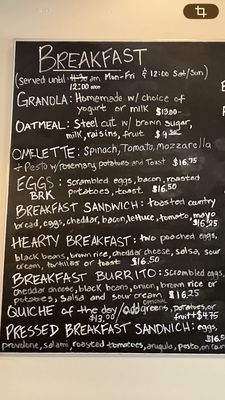 BREAKFAST
(served until 11:30 am Mon-Fri & 12:00 Sat/Sun)
12:00 noon
GRANOLA: Homemade w/ choice of
yogurt or milk $13.00
OATMEAL: Steel cut w/ brown sugar,
milk, raisins, fruit $9
OMELETTE: Spinach, Tomato, mozzarella
+ Pesto w/rosemary potatoes and Toast $16.75
EGGS: scrambled eggs, bacon, roasted
BRK potatoes, toast. $16.50
BREAKFAST SANDWICH: toasted country
bread, eggs, cheddar, bacon, lettuce, tomato, mayo
$16.25
HEARTY BREAKFAST: two poached eggs,
black beans, brown rice, cheddar cheese, salsa, sour
cream, tortillas or toast $16.50
BREAKFAST BURRITO: scrambled eggs,
cheddar cheese, black beans, onion, brown rice or
potatoes, Salsa and sour cream $16.25
QUICHE of the day/add greens, potatoes, or
$13.00 fruit +$4.75
PRESSED BREAKFAST SANDWICH: eggs,
$16.5
provolone, salami, roasted tomatoes, arugula, pesto, on